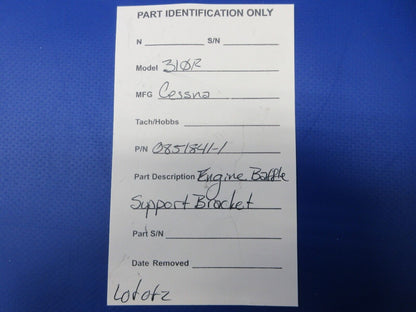 PART IDENTIFICATION ONLY
N ____________ S/N ____________
Model 310R
MFG Cessna
Tach/Hobbs ____________
P/N 0851841-1
Part Description Engine Baffle
Support Bracket
Part S/N ____________
Date Removed ____________
Lot of 2